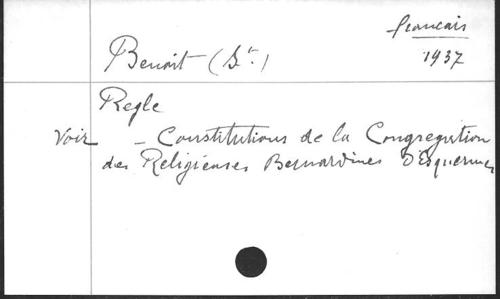 français
Benoit (St.)
1937
Regle
Voir - Constitutions de la Congregation
des Religieuses Bernardines d'Esquermes